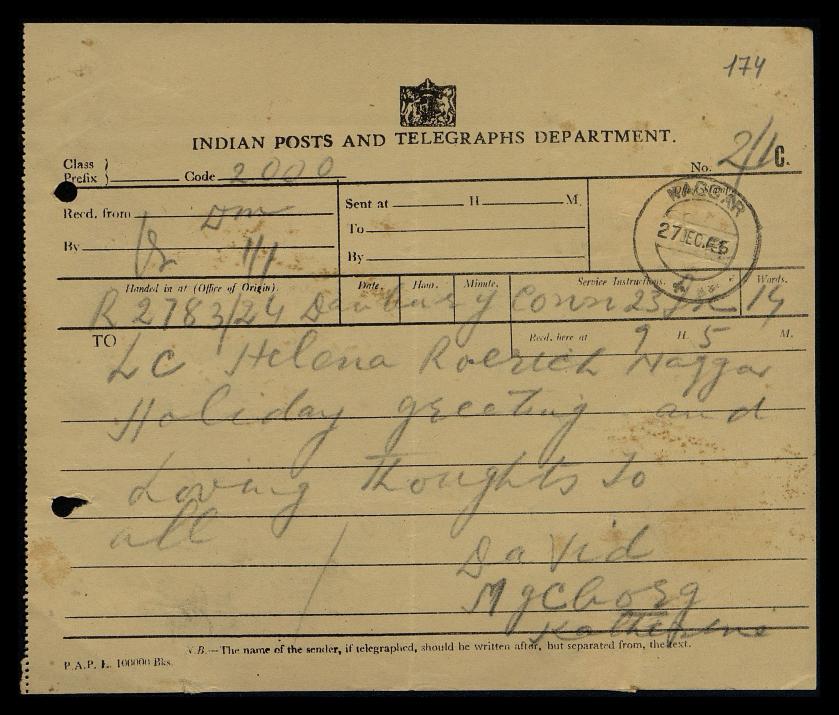 174
INDIAN POSTS AND TELEGRAPHS DEPARTMENT.
Class }
Prefix } Code 2000 No. 2/1 C.
Recd. from Dm Sent at H M.
By To
By
NAGGAR
27 DEC.
Handed in at (Office of Origin). Date. Hour. Minute. Service Instructions. Words.
R 2783/24 Danbury Conn 23 14
TO Recd. here at 9 H. 5 M.
LC Helena Roerich Naggar
Holiday greeting and
Loving thoughts to
all
David
Katherine
N.B.—The name of the sender, if telegraphed, should be written after, but separated from, the text.
P.A.P. L. 100000 Bks.